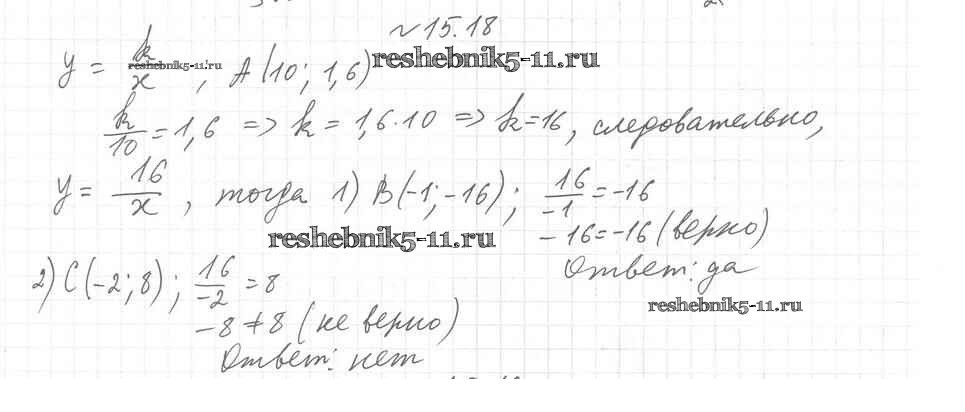 №15.18
y = k/x, A(10; 1,6)
reshebnik5-11.ru
reshebnik5-11.ru
k/10 = 1,6 => k = 1,6·10 => k=16, следовательно,
y = 16/x, тогда 1) B(-1; -16); 16/-1 = -16
-16=-16 (верно)
reshebnik5-11.ru
Ответ: да
2) C(-2; 8); 16/-2 = 8
reshebnik5-11.ru
-8 ≠ 8 (не верно)
Ответ: нет